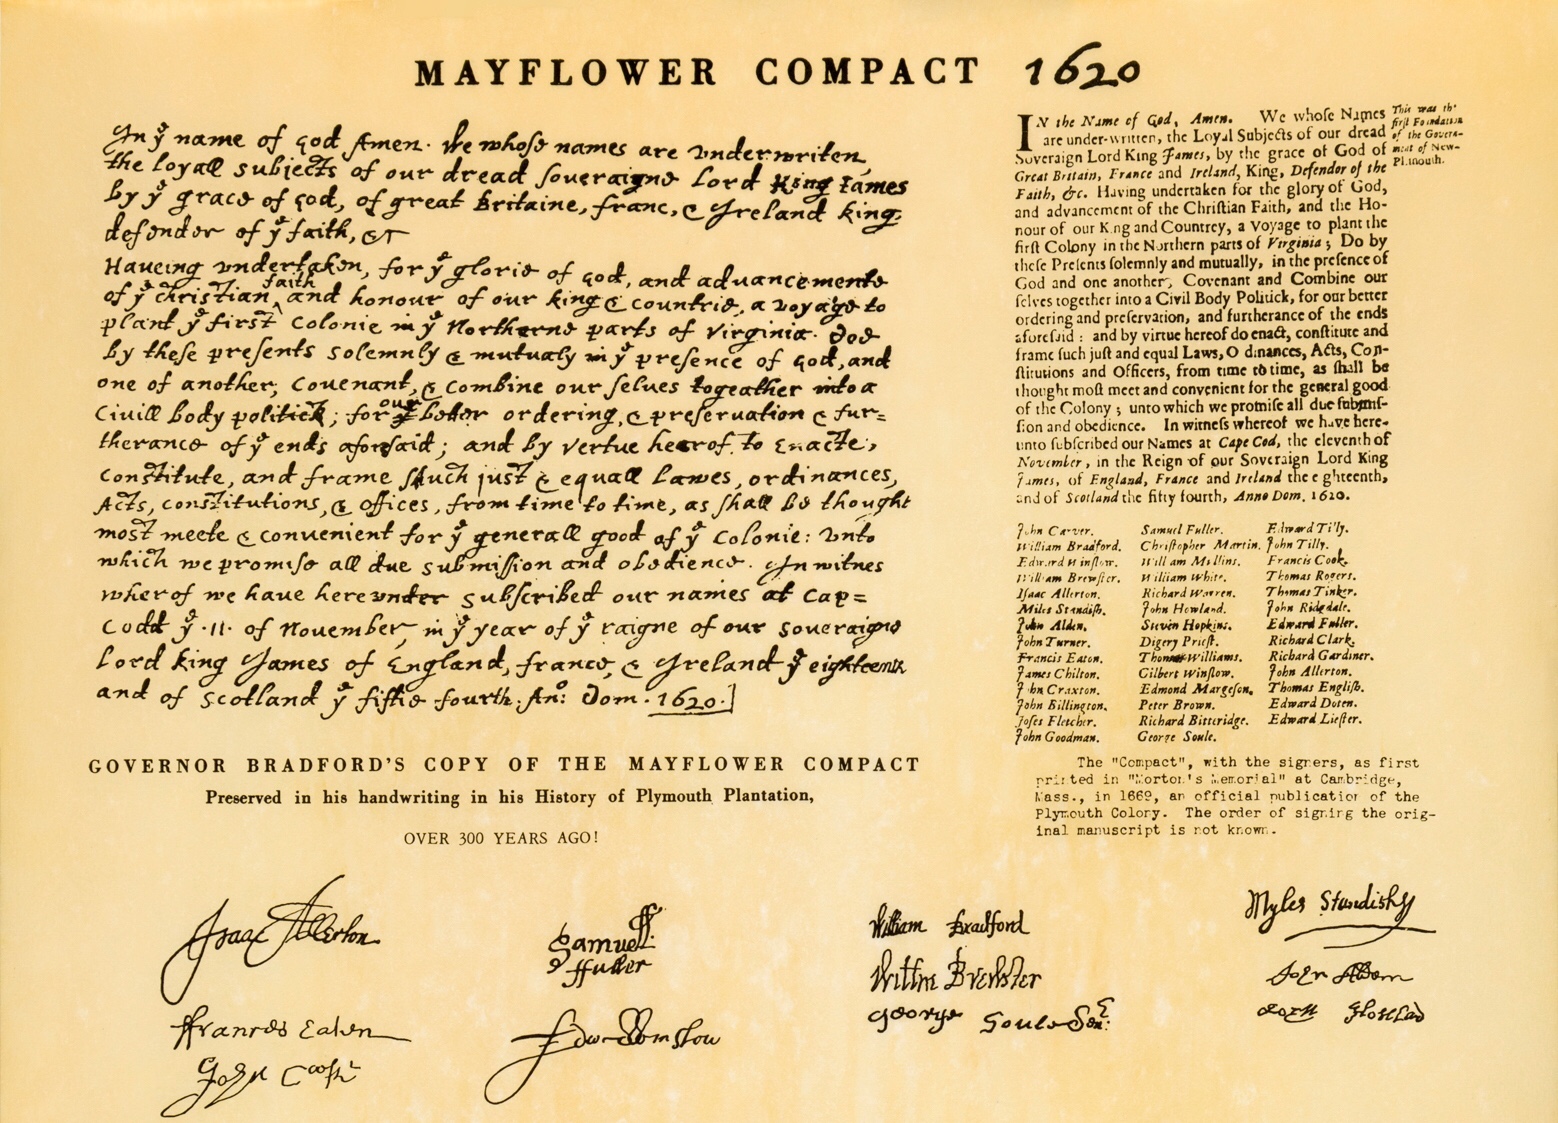 MAYFLOWER COMPACT 1620
In yͤ name of god Amen. We whose names are vnderwriten,
the loyall subjects of our dread soueraigne Lord King Iames
by yͤ grace of god, of great Britaine, franc, & Ireland king,
defender of yͤ faith, &c
Haueing vndertaken, for yͤ glorie of god, and advancemente
of yͤ christian faith and honour of our king & countrie, a voyage to
plant yͤ first colonie in yͤ Northerne parts of Virginia. Doe
by these presents solemnly & mutualy in yͤ presence of god, and
one of another, couenant, & combine our selues togeather into a
ciuill body politick; for our better ordering, & preseruation & fur=
therance of yͤ ends aforesaid; and by vertue hearof, to enacte,
constitute, and frame such just & equall lawes, ordinances,
Acts, constitutions, & offices, from time to time, as shall be thought
most meete & conuenient for yͤ generall good of yͤ colonie: vnto
which we promise all due submission and obedience. In witnes
wherof we haue herevnder subscribed our names at Cap=
Codd yͤ .11. of Nouember, in yͤ year of yͤ raigne of our soueraigne
Lord king James of England, france, & Ireland yͤ eighteenth
and of Scotland yͤ fiftie fourth. Anͦ: Dom. 1620.]
GOVERNOR BRADFORD'S COPY OF THE MAYFLOWER COMPACT
Preserved in his handwriting in his History of Plymouth Plantation,
OVER 300 YEARS AGO!
IN the Name of God, Amen. We whoſe Names
are under-written, the Loyal Subjects of our dread
Soveraign Lord King James, by the grace of God of
Great Britain, France and Ireland, King, Defendor of the
Faith, &c. Having undertaken for the glory of God,
and advancement of the Chriſtian Faith, and the Ho-
nour of our King and Countrey, a Voyage to plant the
firſt Colony in the Northern parts of Virginia; Do by
theſe Preſents ſolemnly and mutually, in the preſence of
God and one another, Covenant and Combine our
ſelves together into a Civil Body Politick, for our better
ordering and preſervation, and furtherance of the ends
aforeſaid: and by virtue hereof do enact, conſtitute and
frame ſuch juſt and equal Laws, Ordinances, Acts, Con-
ſtitutions and Officers, from time to time, as ſhall be
thought moſt meet and convenient for the general good
of the Colony; unto which we promiſe all due ſubmiſ-
ſion and obedience. In witneſs whereof we have here-
unto ſubſcribed our Names at Cape Cod, the eleventh of
November, in the Reign of our Soveraign Lord King
James, of England, France and Ireland the eighteenth,
and of Scotland the fifty fourth, Anno Dom. 1620.
This was the
firſt Foundation
of the Govern-
ment of New-
Plimouth.
John Carver. Samuel Fuller. Edward Tilly.
William Bradford. Chriſtopher Martin. John Tilly.
Edward Winſlow. William Mullins. Francis Cook.
William Brewſter. William White. Thomas Rogers.
Iſaac Allerton. Richard Warren. Thomas Tinker.
Miles Standiſh. John Howland. John Ridgdale.
John Alden. Steven Hopkins. Edward Fuller.
John Turner. Digery Prieſt. Richard Clark.
Francis Eaton. Thomas Williams. Richard Gardiner.
James Chilton. Gilbert Winſlow. John Allerton.
John Craxton. Edmond Margeſon. Thomas Engliſh.
John Billington. Peter Brown. Edward Doten.
Joſes Fletcher. Richard Bitteridge. Edward Lieſter.
John Goodman. George Soule.
The "Compact", with the signers, as first
printed in "Morton's Memorial" at Cambridge,
Mass., in 1669, an official publication of the
Plymouth Colony. The order of signing the orig-
inal manuscript is not known.
Isaac Allerton
Samuell
ffuller
William Bradford
Willm Brewster
George Soule Senͬ:
Myles Standish
John Alden
John Howland
Francis Eaton
John Cooke
Edw: Winslow